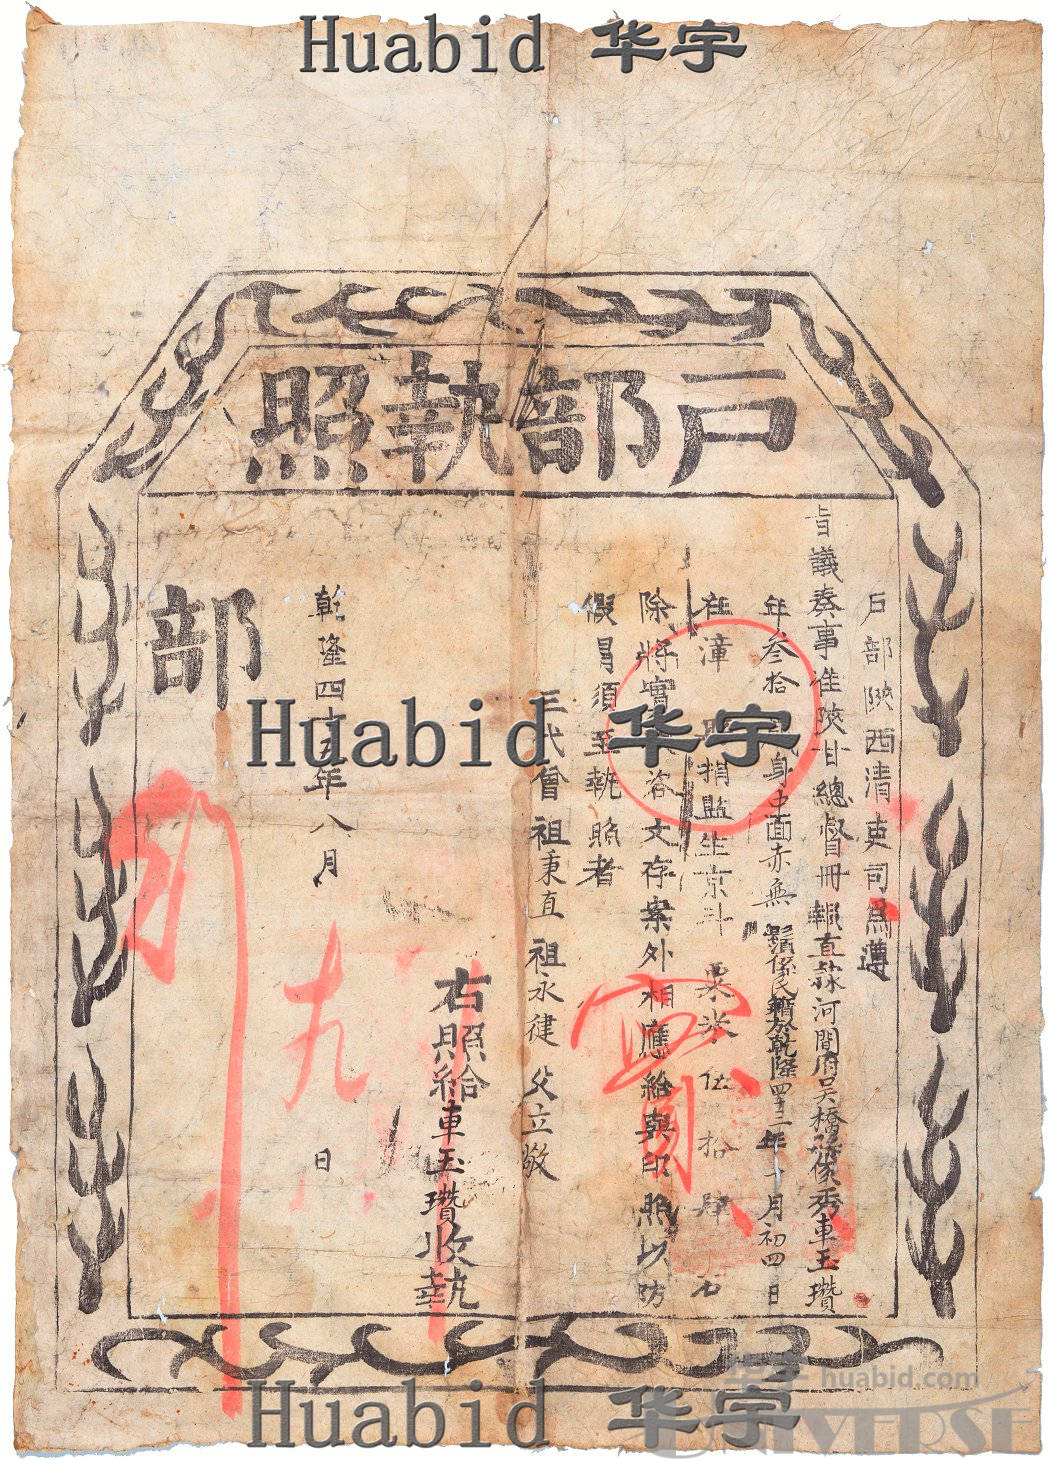 Huabid 华宇
戶部執照
戶部陝西清吏司爲遵
旨議奏事准陝甘總督冊報直隸河間府吳橋縣俊秀車玉瓚
年叁拾歲身中面赤無鬚係民籍於乾隆四十三年十月初四日
在漳縣捐監生京斗粟米伍拾肆石
除將實收咨文存案外相應給與印照以防
假冒須至執照者
三代曾祖秉直 祖永建 父立敬
右照給車玉瓚收執
乾隆四十五年八月 九 日
部
實
行
Huabid 华宇
Huabid 华宇
华宇 huabid.com
UNIVERSE